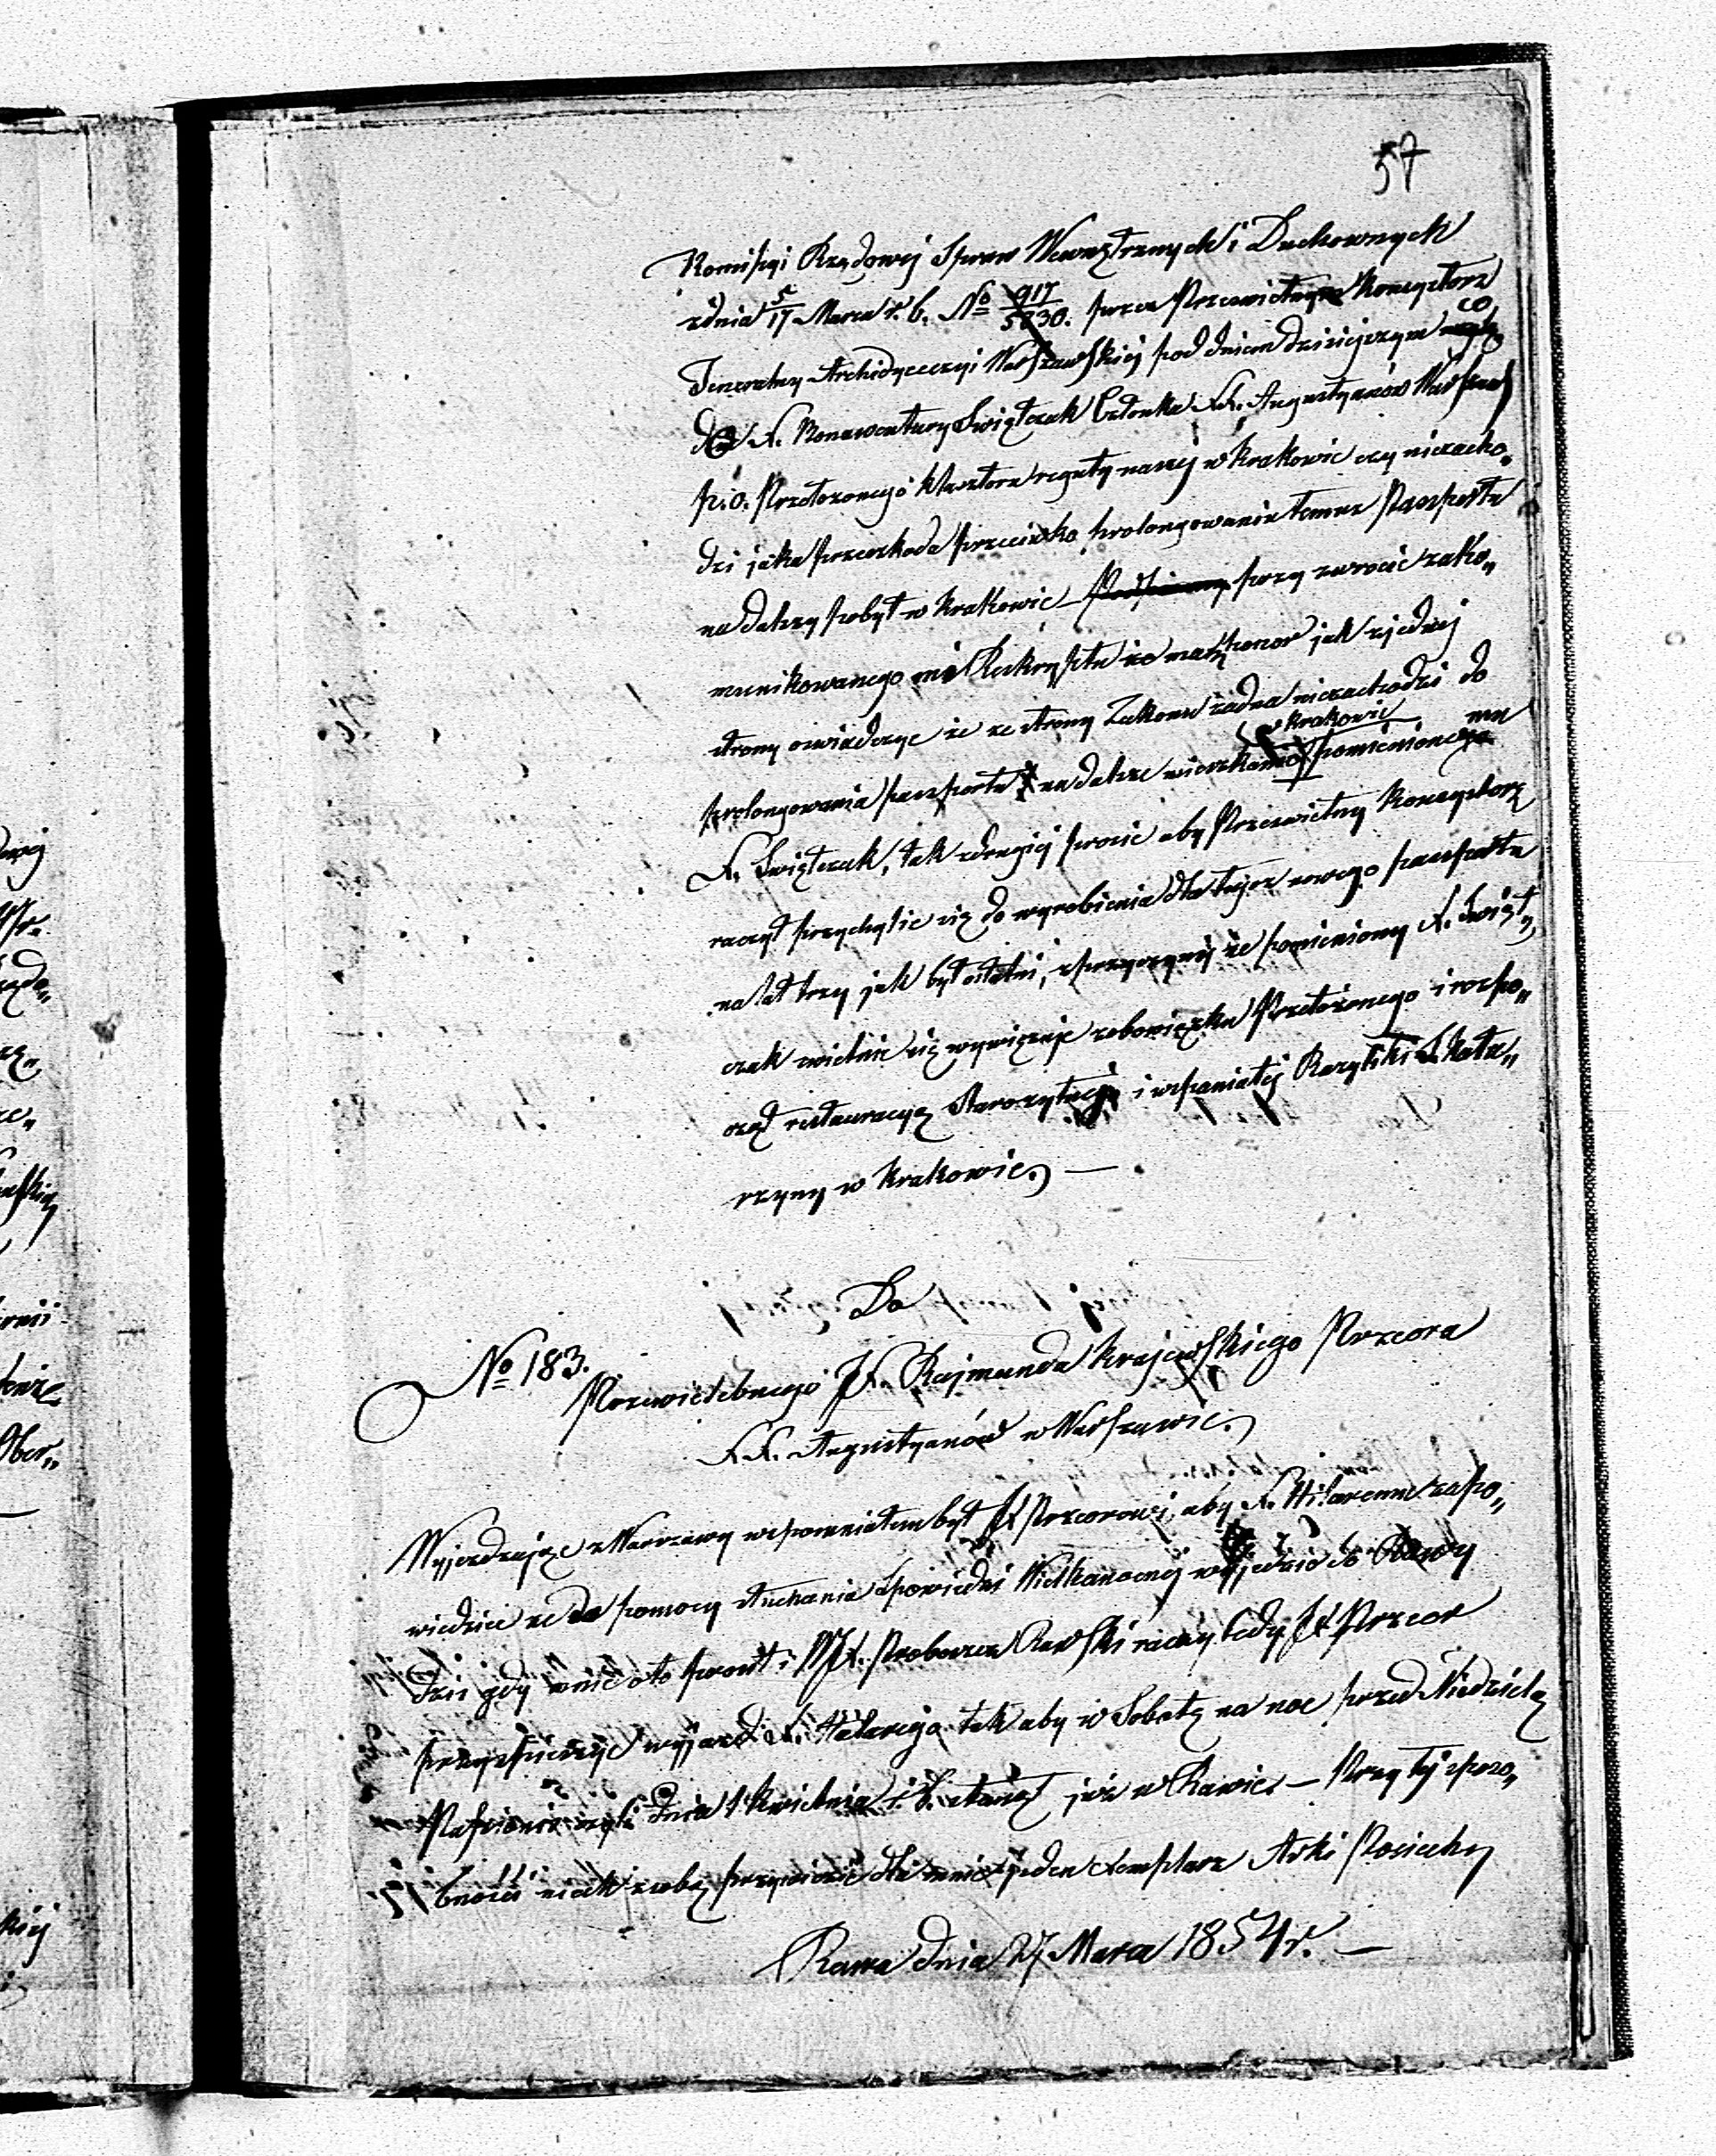 57
Komissyi Rządowej Spraw Wewnętrznych i Duchownych
z dnia 5/17 Marca r. b. No 917/5830. przez Prześwietny Konsystorz
Jeneralny Archidyecezyi Warszawskiej pod dniem dzisiejszym co
do X. Bonawentury Świątczak Członka XX. Augustyanów Warszaw
p. o. Przełożonego Klasztoru reguły naszej w Krakowie czy niezacho„
dzi jaka przeszkoda przeciwko prolongowaniu temuż Paszportu
na dalszy pobyt w Krakowie — przy zwrocie zako„
munikowanego mi Reskryptu ma honor jak z jednej
strony oświadczyć że ze strony Zakonu żadna niezachodzi do
prolongowania paszportu na dalsze mieszkanie w Krakowie pomienionemu
X. Świątczak, tak z drugiej prosić aby Prześwietny Konsystorz
raczył przychylić się do wyrobienia dla tegoż nowego paszportu
na lat trzy jak był ostatni, z przyczyny że pomieniony X. Świąt„
czak świetnie się wywięzuje z obowiązku Przełożonego i rozpo„
czął restauracyą Starożytnej i wspaniałej Bazyliki S. Kata„
rzyny w Krakowie. —
Do
No 183.
Przewielebnego JX. Rajmunda Krajewskiego Przeora
XX. Augustyanów w Warszawie.
Wyjeżdżając z Warszawy wspomniałem był JX Przeorowi, aby X. Hilaremu zapo„
wiedzieć że do pomocy słuchania Spowiedzi Wielkanocnej wyjedzie do Rawy
Dziś gdy mnie oto prosił i WJX. Proboszcz Rawski raczy tedy JX Przeor
przyspieszyć wyjazd X. Hilarego tak aby w Sobotę na noc przed Niedzielą
Passionis czyli dnia 1 Kwietnia r. b. stanął już w Rawie. — Przy tej sposo„
bności niech z sobą przywiezie dla mnie jeden exemplarz Arki Pociechy
Rawa dnia 27 Marca 1854 r. —